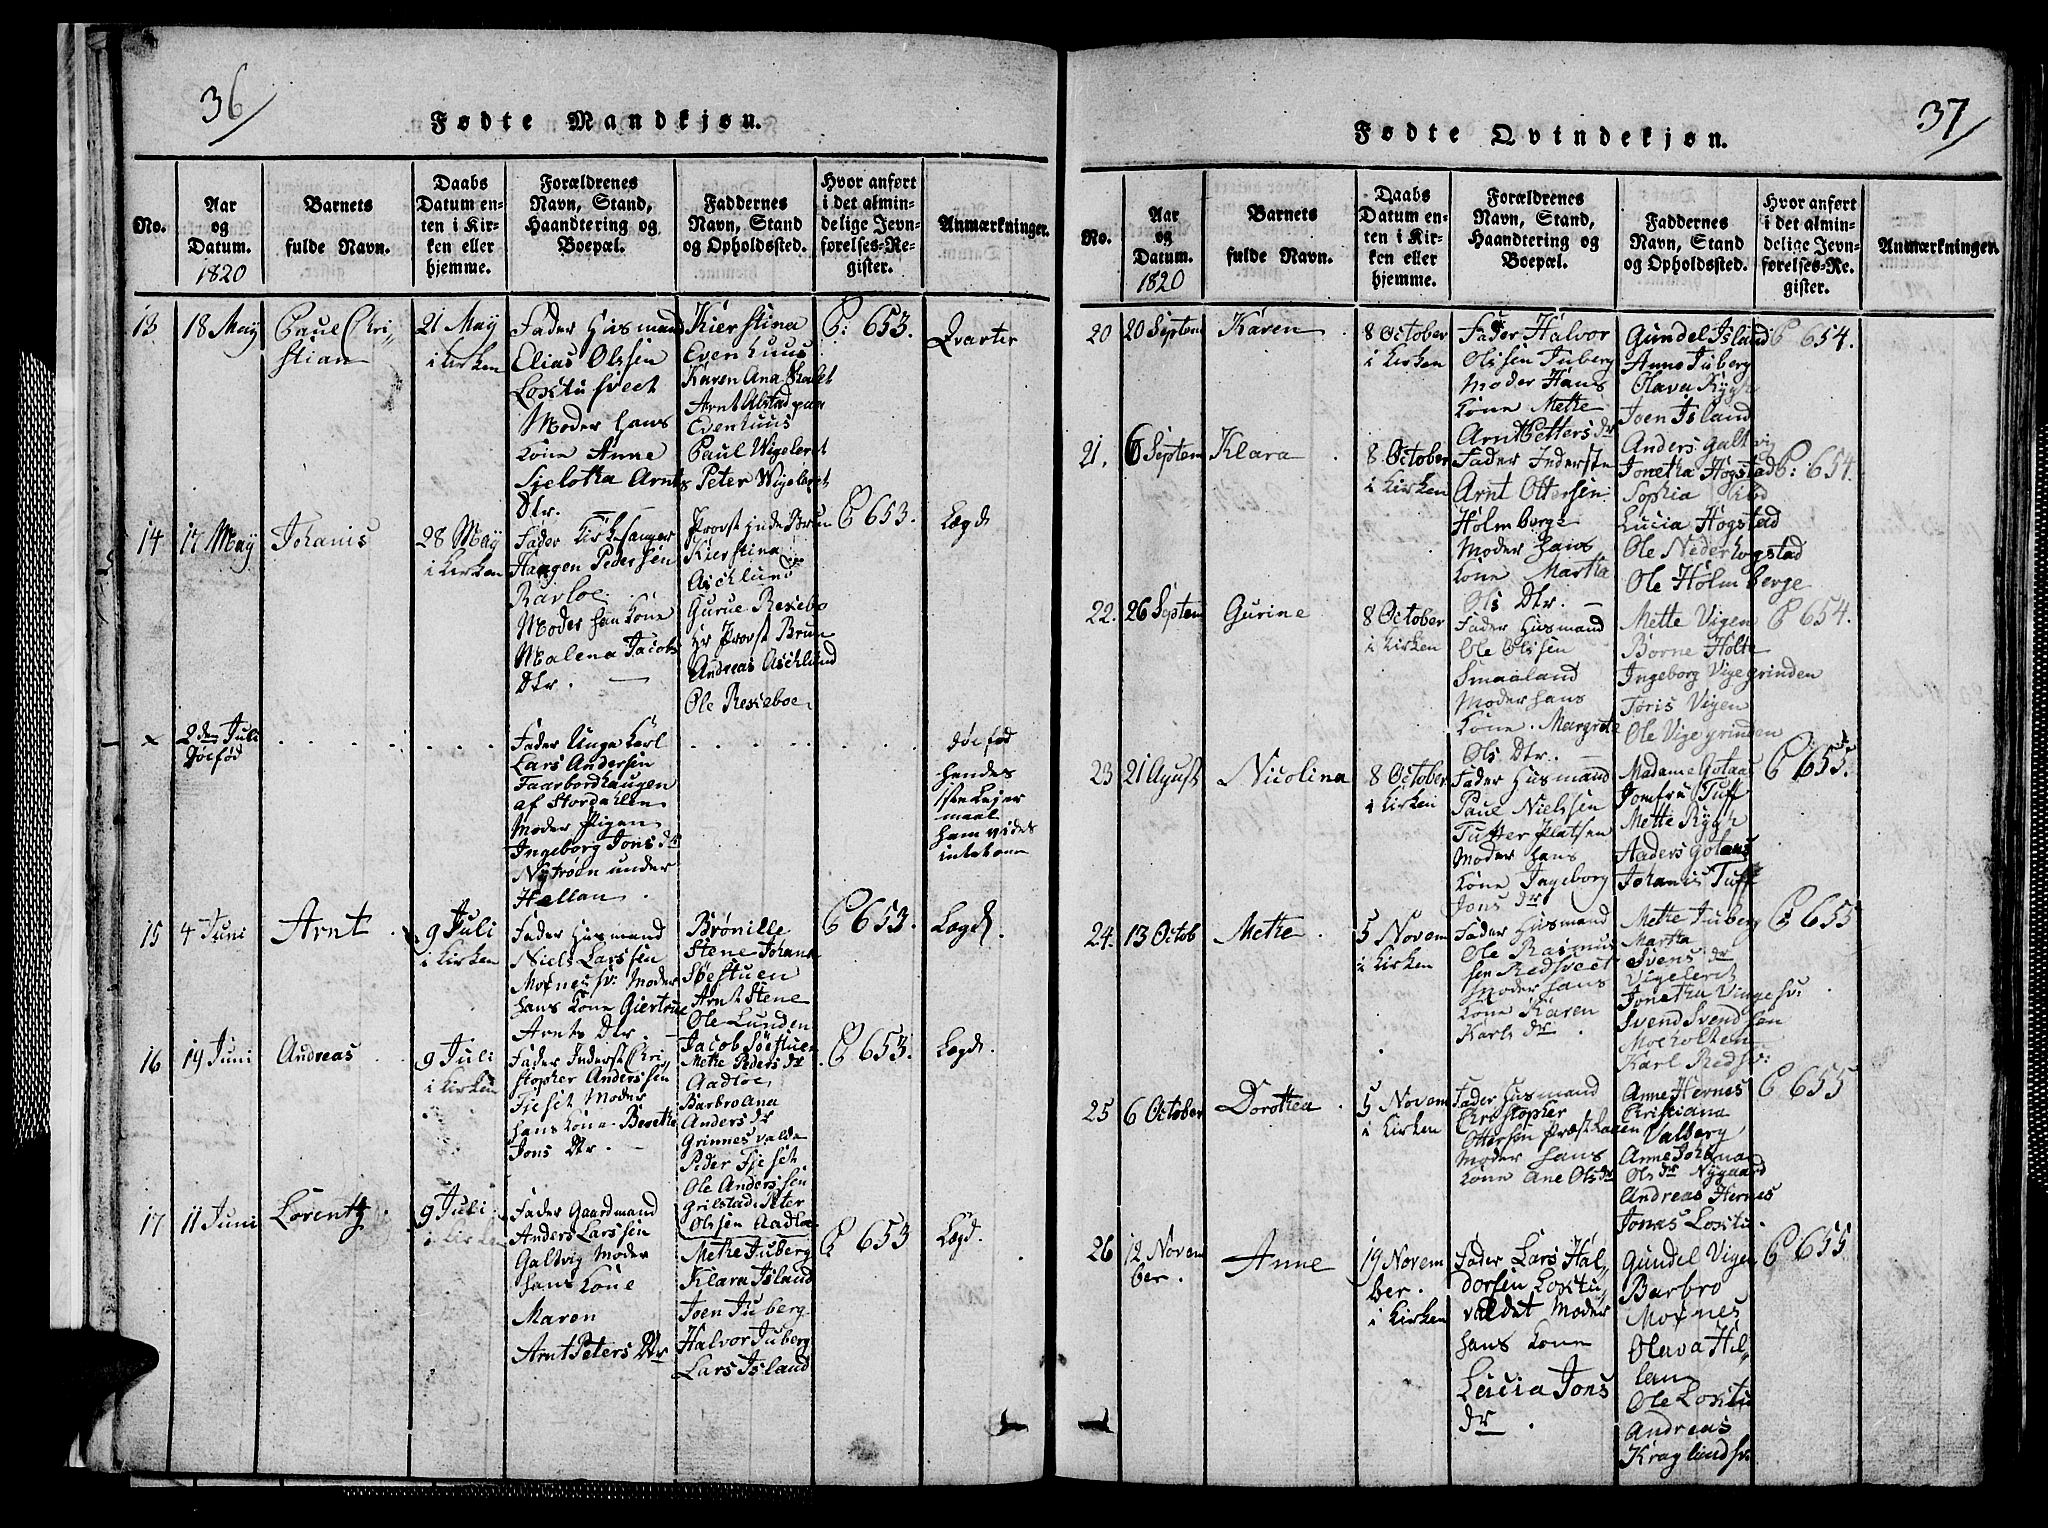 36
Fødte Mandkjøn.
No.
Aar
og
Datum.
1820
Barnets
fulde Navn.
Daabs
Datum en-
ten i Kir-
ken eller
hjemme.
Forældrenes
Navn, Stand,
Haandtering og
Boepæl.
Faddernes
Navn, Stand
og Opholdssted.
Hvor anført
i det almin-
delige Jevn-
førelses-Re-
gister.
Anmærkninger.
13
18 May
Paul Chri-
stian
21 May
i Kirken
Fader Husmand
Elias Olssen
Loxtu sveet
Moder Hans
Kone Anne
Sjelotha Arnts
Dtr.
Kierstina
Evenhuus
Karen Ana Skalet
Arnt Alstad paa
Evenhuus
Paul Wigeleret
Peter Wigeleret
P: 653.
Qvarter
14
17 May
Johanis
28 May
i Kirken
Fader Kirkesanger
Haagen Pedersen
Ravloe.
Moder han Kone
Malena Jacobs
Dtr.
Provstinde Brun
Kierstina
Aschlund
Gurue Rexebo
Hr Provst Brun
Andreas Aschlund
Ole Rexeboe
P 653.
Lægd
x
2den Juli
Døefød
Fader Unge Karl
Lars Andersen
Faarbordhaugen
af Stordahlen
Moder Pigen
Ingeborg Jons dr
Nytrøen under
Hellan.
døefød
Hendes
1ste Lejer
maal
ham vides
intet om
15
4 Juni
Arnt
9 Juli
i Kirken
Fader Husmand
Niels Larssen
Moxnes sv: Moder
Hans Kone Giertrue
Arnts Dtr.
Brønille
Stene Johana
Søestuen
Arnt Stene
Ole Lunden
Jacob Søestuen
P 653.
Lægd.
16
19 Juni
Andreas
9 Juli
i Kirken
Fader Inderst Chri-
stopher Anderssen
Fieset Moder
Hans Kone Berethe
Jons Dtr.
Methe Peders dr
Aadloe,
Barbro Ana
Anders dr
Grinnesvalde
Peder Fieset
Ole Anderssen
Grilstad, Peter
Olssen Aadloe
P 653.
Lægd.
17
11 Juni
Lorentz
9 Juli
i Kirken
Fader Gaardmand
Anders Larssen
Galtvig Moder
Hans Kone
Maren
Arnt Peters Dtr
Methe Juberg
Klara Island
Joen Juberg
Halvor Juberg
Lars Island
P 653
Lægd.
37
Fødte Qvindekjøn.
No.
Aar
og
Datum.
1820
Barnets
fulde Navn.
Daabs
Datum en-
ten i Kir-
ken eller
hjemme.
Forældrenes
Navn, Stand,
Haandtering og
Boepæl.
Faddernes
Navn, Stand
og Opholdssted.
Hvor anført
i det almin-
delige Jevn-
førelses-Re-
gister.
Anmærkninger.
20
20 Septem
Karen
8 October
i Kirken
Fader Halvor
Olssen Juberg
Moder Hans
Kone Methe
Arnt Petters dr
Gundel Island
Anne Juberg
Olava Rygh
Joen Island
Anders Galtvig
P 654.
21.
6 Septem
Klara
8 October
i Kirken
Fader Inderste
Arnt Ottersen
Holmberge
Moder Hans
Kone Martha
Ols Dtr.
Jonetha Hogstad
Sophia
Lucia Hogstad
Ole Nederhogstad
Ole Holmberge
P: 654.
22.
26 Septem
Gurine
8 October
i Kirken
Fader Husmand
Ole Olssen
Smaaland
Moder Hans
Kone. Margrete
Ols Dtr.
Mette Vigen
Børne Holte
Ingeborg Vigegrinden
Joris Vigen
Ole Vigegrinden
P 654.
23
21 Agust
Nicolina
8 October
i Kirken
Fader Husmand
Paul Nielssen
Tutter Platsen
Moder Hans
Kone Ingeborg
Jons dr
Madame Gotaas
Jomfru Tuff
Mette Rygh
Anders Gotaas
Johanis Tuff
P 655.
24.
13 Octob
Methe
5 Novem
i Kirken
Fader Husmand
Ole Rasmus
sen Redsveet
Moder Hans
Kone Karen
Karls dr
Methe Juberg
Martha
Svens dr
Vigeleret
Jonetha Vinge sv:
Svend Svendsen
Moeholten
Karl Redsv:
P 655
25
6 October
Dorothea
5 Novem
i Kirken
Fader Husmand
Christopher
Ottersen Præsthaen
Moder Hans
Kone Ane Ols dr
Anne Hernes
Christiana
Valberg
Anne Johana
Ols dr Nygaard
Andreas Hernes
Jonas Loxtu
P 655
26
12 Novem
ber.
Anne
19 Novem
ber.
i Kirken
Fader Lars Hal-
dorsen Loxtu
valdet Moder
Hans Kone
Lucia Jons
dr
Gundel Vigen
Barbro
Moxnes
Olava Hil-
lan
Ole Loxtu
Andreas
Kraglund sv.
P 655